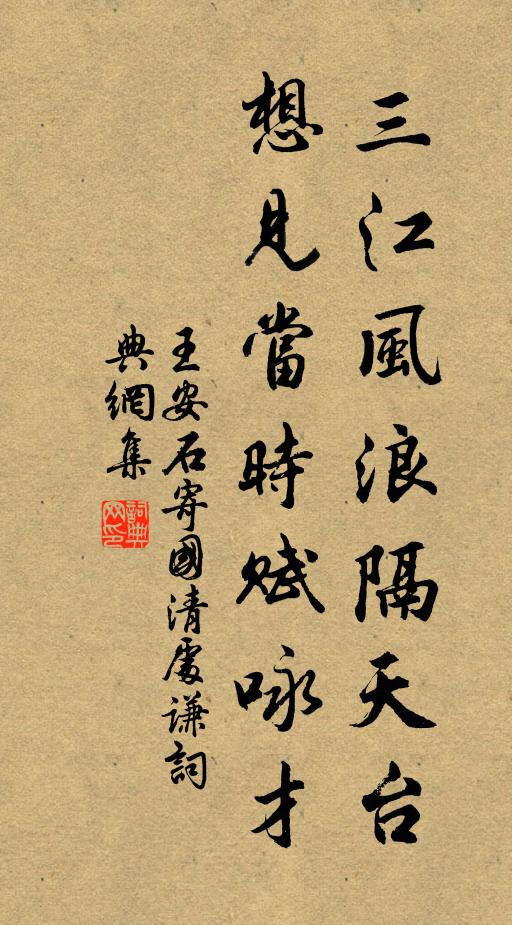 三江風浪隔天台
想見當時賦咏才
王安石寄國清處謙詞
典網集
詞典
网印